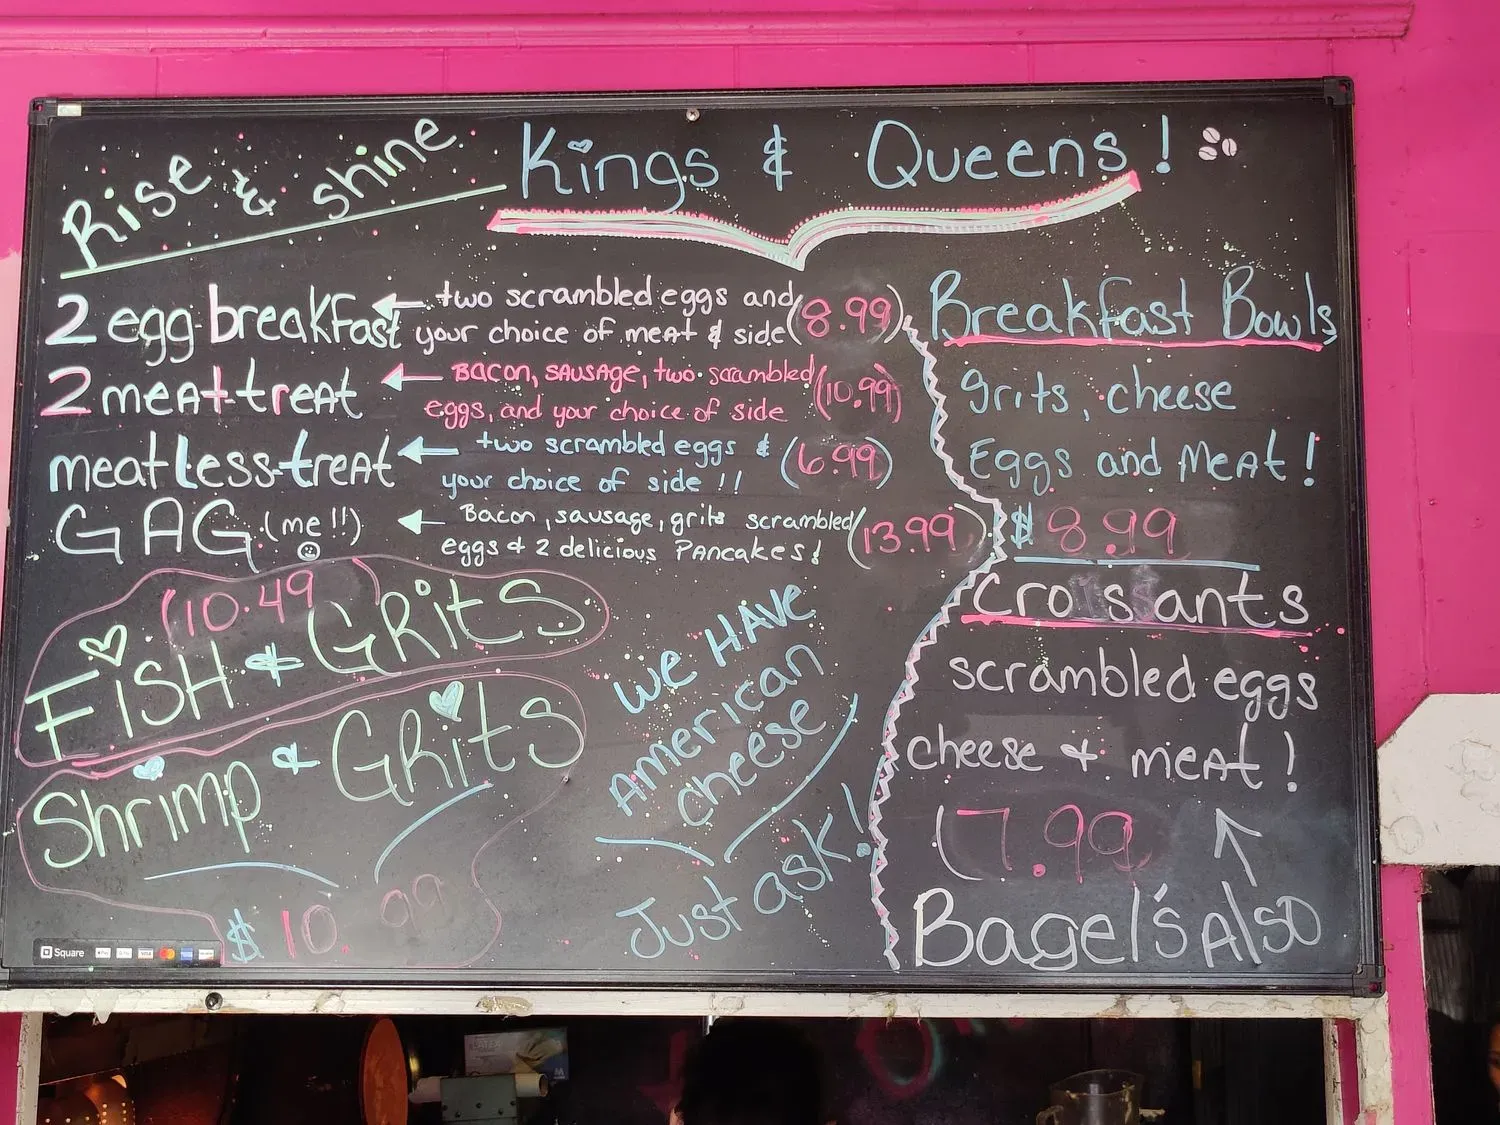 Rise & shine Kings & Queens!
2 egg breakfast
two scrambled eggs and
your choice of meat & side (8.99)
2 meat treat
Bacon, sausage, two scrambled
eggs, and your choice of side (10.99)
meatless treat
two scrambled eggs &
your choice of side !! (6.99)
GAG (me!!)
Bacon, sausage, grits scrambled
eggs & 2 delicious Pancakes! (13.99)
(10.49)
Fish & Grits
Shrimp & Grits
$10.99
we HAve
American
cheese
Just ask!
Breakfast Bowls
grits, cheese
Eggs and Meat!
$8.99
Croissants
scrambled eggs
cheese & meat!
(7.99
Bagel's Also
Square